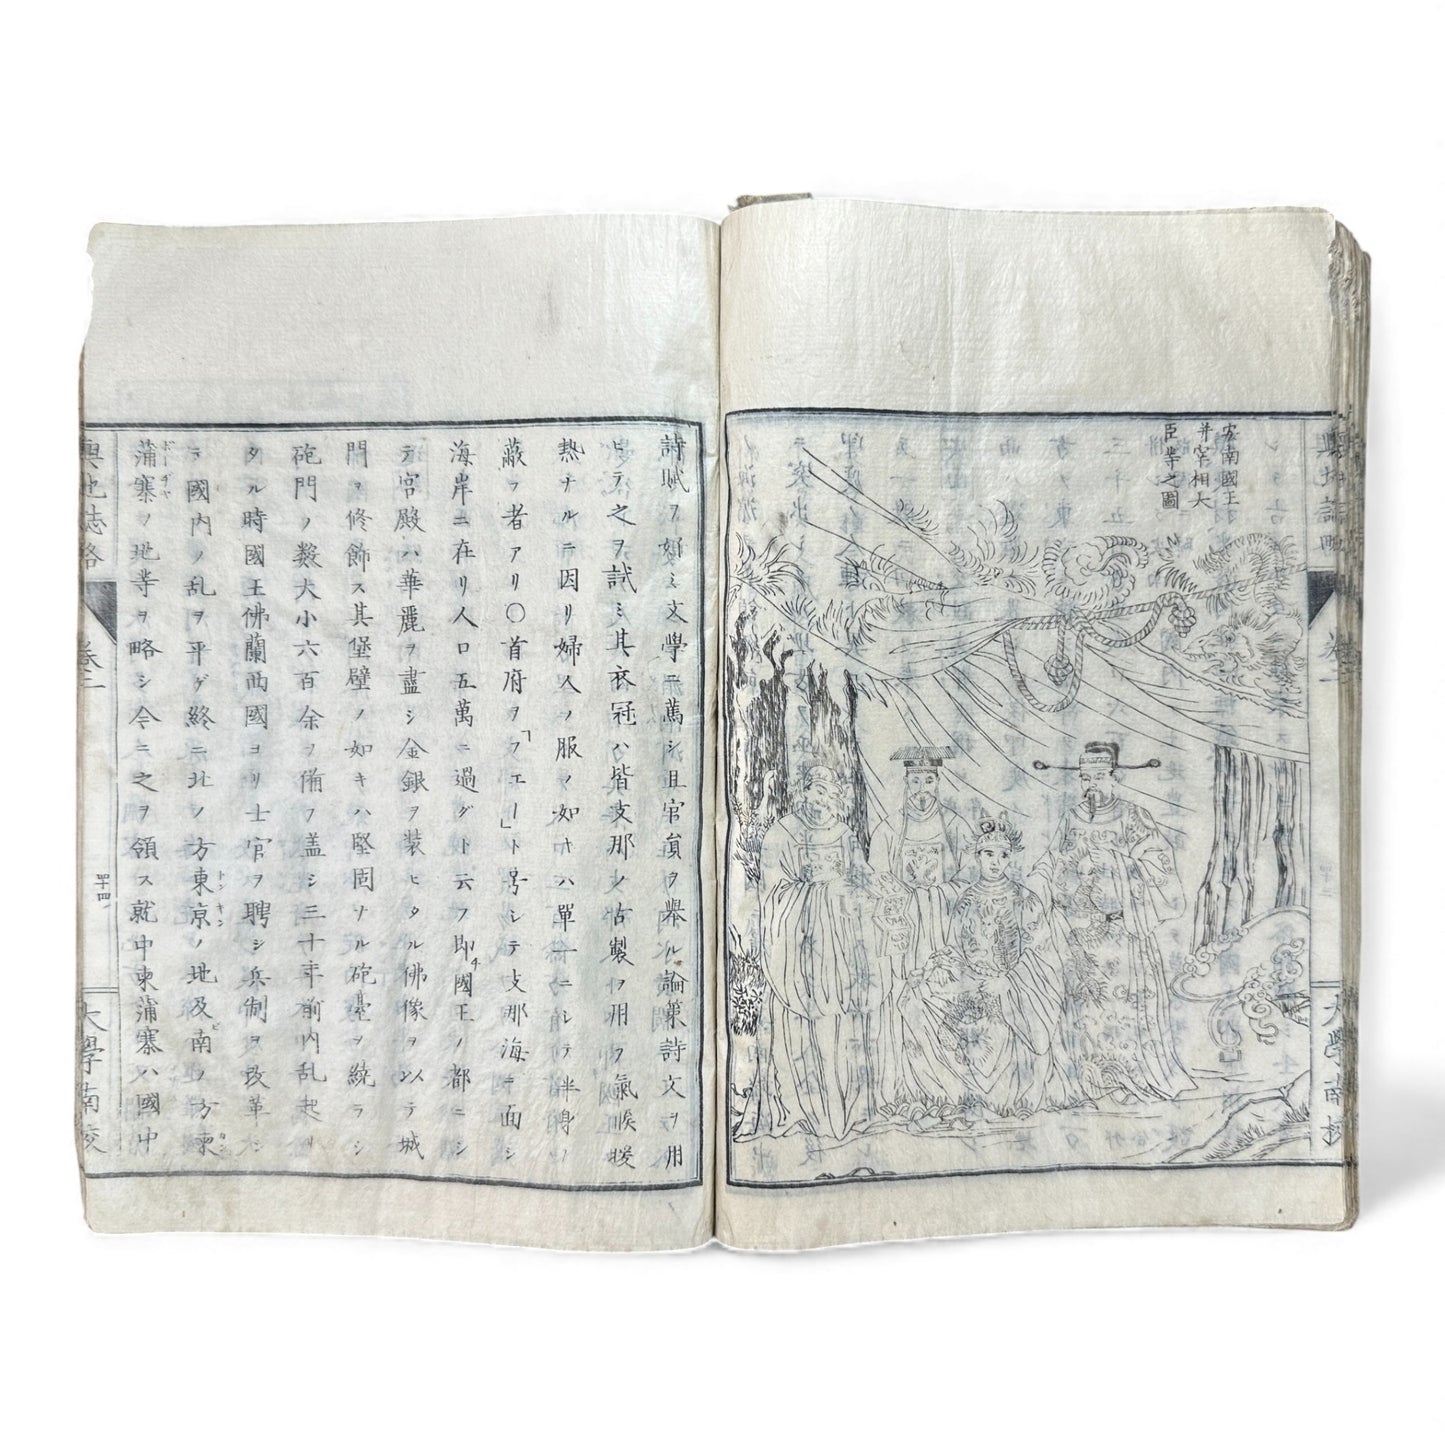 安南國王
并宰相大
臣等之圖
詩賦ヲ好ミ文學ニ薦シ且官員ヲ擧ル論策詩文ヲ用
ヒテ之ヲ試ミ其衣冠ハ皆支那ノ古製ヲ用フ氣候暖
熱ナルニ因リ婦人ノ服ノ如キハ單一ニシテ半身ヲ
蔽フ者アリ〇首府ヲ「フエー」ト号シテ支那海ニ面シ
海岸ニ在リ人口五萬ニ過グト云フ即チ國王ノ都ニシ
テ宮殿ハ華麗ヲ盡シ金銀ヲ装ヒタル佛像ヲ以テ城
門ヲ修飾ス其堡壁ノ如キハ堅固ナル砲臺ヲ繞ラシ
砲門ノ数大小六百余ヲ備フ盖シ三十年前内乱起リ
タル時國王佛蘭西國ヨリ士官ヲ聘シ兵制ヲ改革シ
テ國内ノ乱ヲ平ゲ終ニ北ノ方東京ノ地及ビ南ノ方柬
蒲寨ノ地等ヲ略シ今ニ之ヲ領ス就中柬蒲寨ハ國中
輿地誌略 卷二 四十四 大學南校